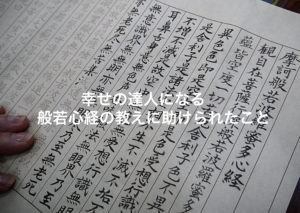 幸せの達人になる
般若心経の教えに助けられたこと
摩訶般若波羅蜜多心経
観自在菩薩行深般若波羅蜜多
蘊皆空度一切苦厄舎利子色不異
異色色即是空空即是色受想行識
是舎利子是諸法空相不生不滅
不増不減是故空中無色無受想行識
耳鼻舌身意無色声香味触法無眼界乃至
無意識界無無明亦無無明尽乃至無老死